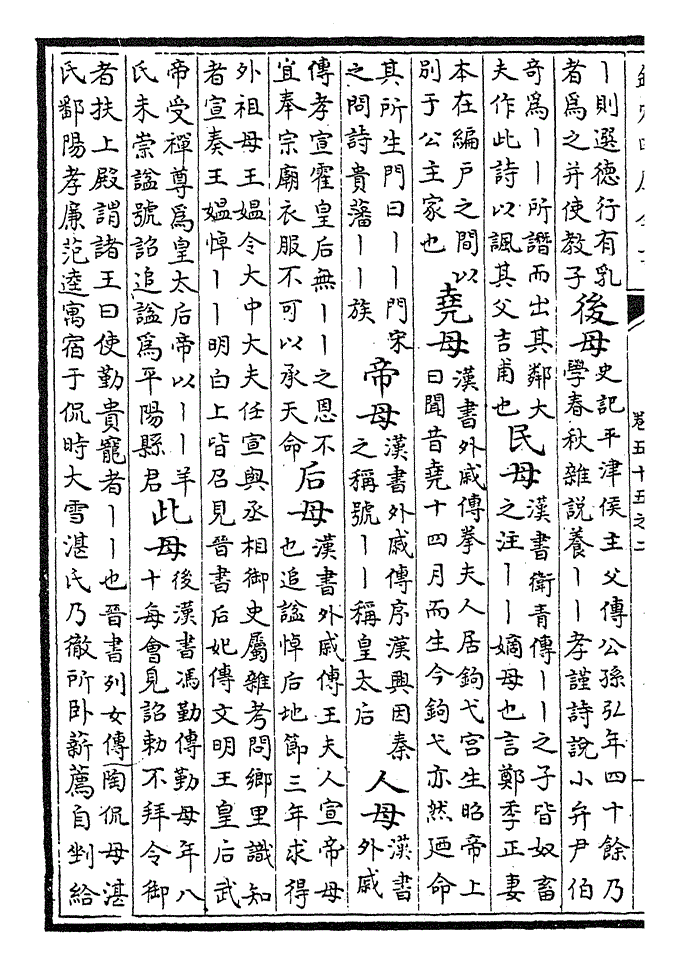 卷五十五之二
丨則選德行有乳者為之并使教子後母史記平津侯主父傳公孫弘年四十餘乃學春秋雜説養丨丨孝謹詩説小弁尹伯
奇為丨丨所譖而出其鄰大夫作此詩以諷其父吉甫也民母漢書衛青傳丨丨之子皆奴畜之注丨丨嫡母也言鄭季正妻
本在編户之間以别于公主家也堯母漢書外戚傳拳夫人居鉤弋宫生昭帝上曰聞昔堯十四月而生今鉤弋亦然廼命
其所生門曰丨丨門宋之問詩貴藩丨丨族帝母漢書外戚傳序漢興因秦之稱號丨丨稱皇太后人母漢書外戚
傳孝宣霍皇后無丨丨之恩不宜奉宗廟衣服不可以承天命后母漢書外戚傳王夫人宣帝母也追諡悼后地節三年求得
外祖母王媪令大中大夫任宣與丞相御史屬雜考問鄉里識知者宣奏王媪悼丨丨明白上皆召見晉書后妃傳文明王皇后武
帝受禪尊為皇太后帝以丨丨羊氏未崇諡號詔追諡為平陽縣君此母後漢書馮勤傳勤母年八十每會見詔勅不拜令御
者扶上殿謂諸王曰使勤貴寵者丨丨也晉書列女傳陶侃母湛氏鄱陽孝廉范逵寓宿于侃時大雪湛氏乃徹所卧薪薦自剉給